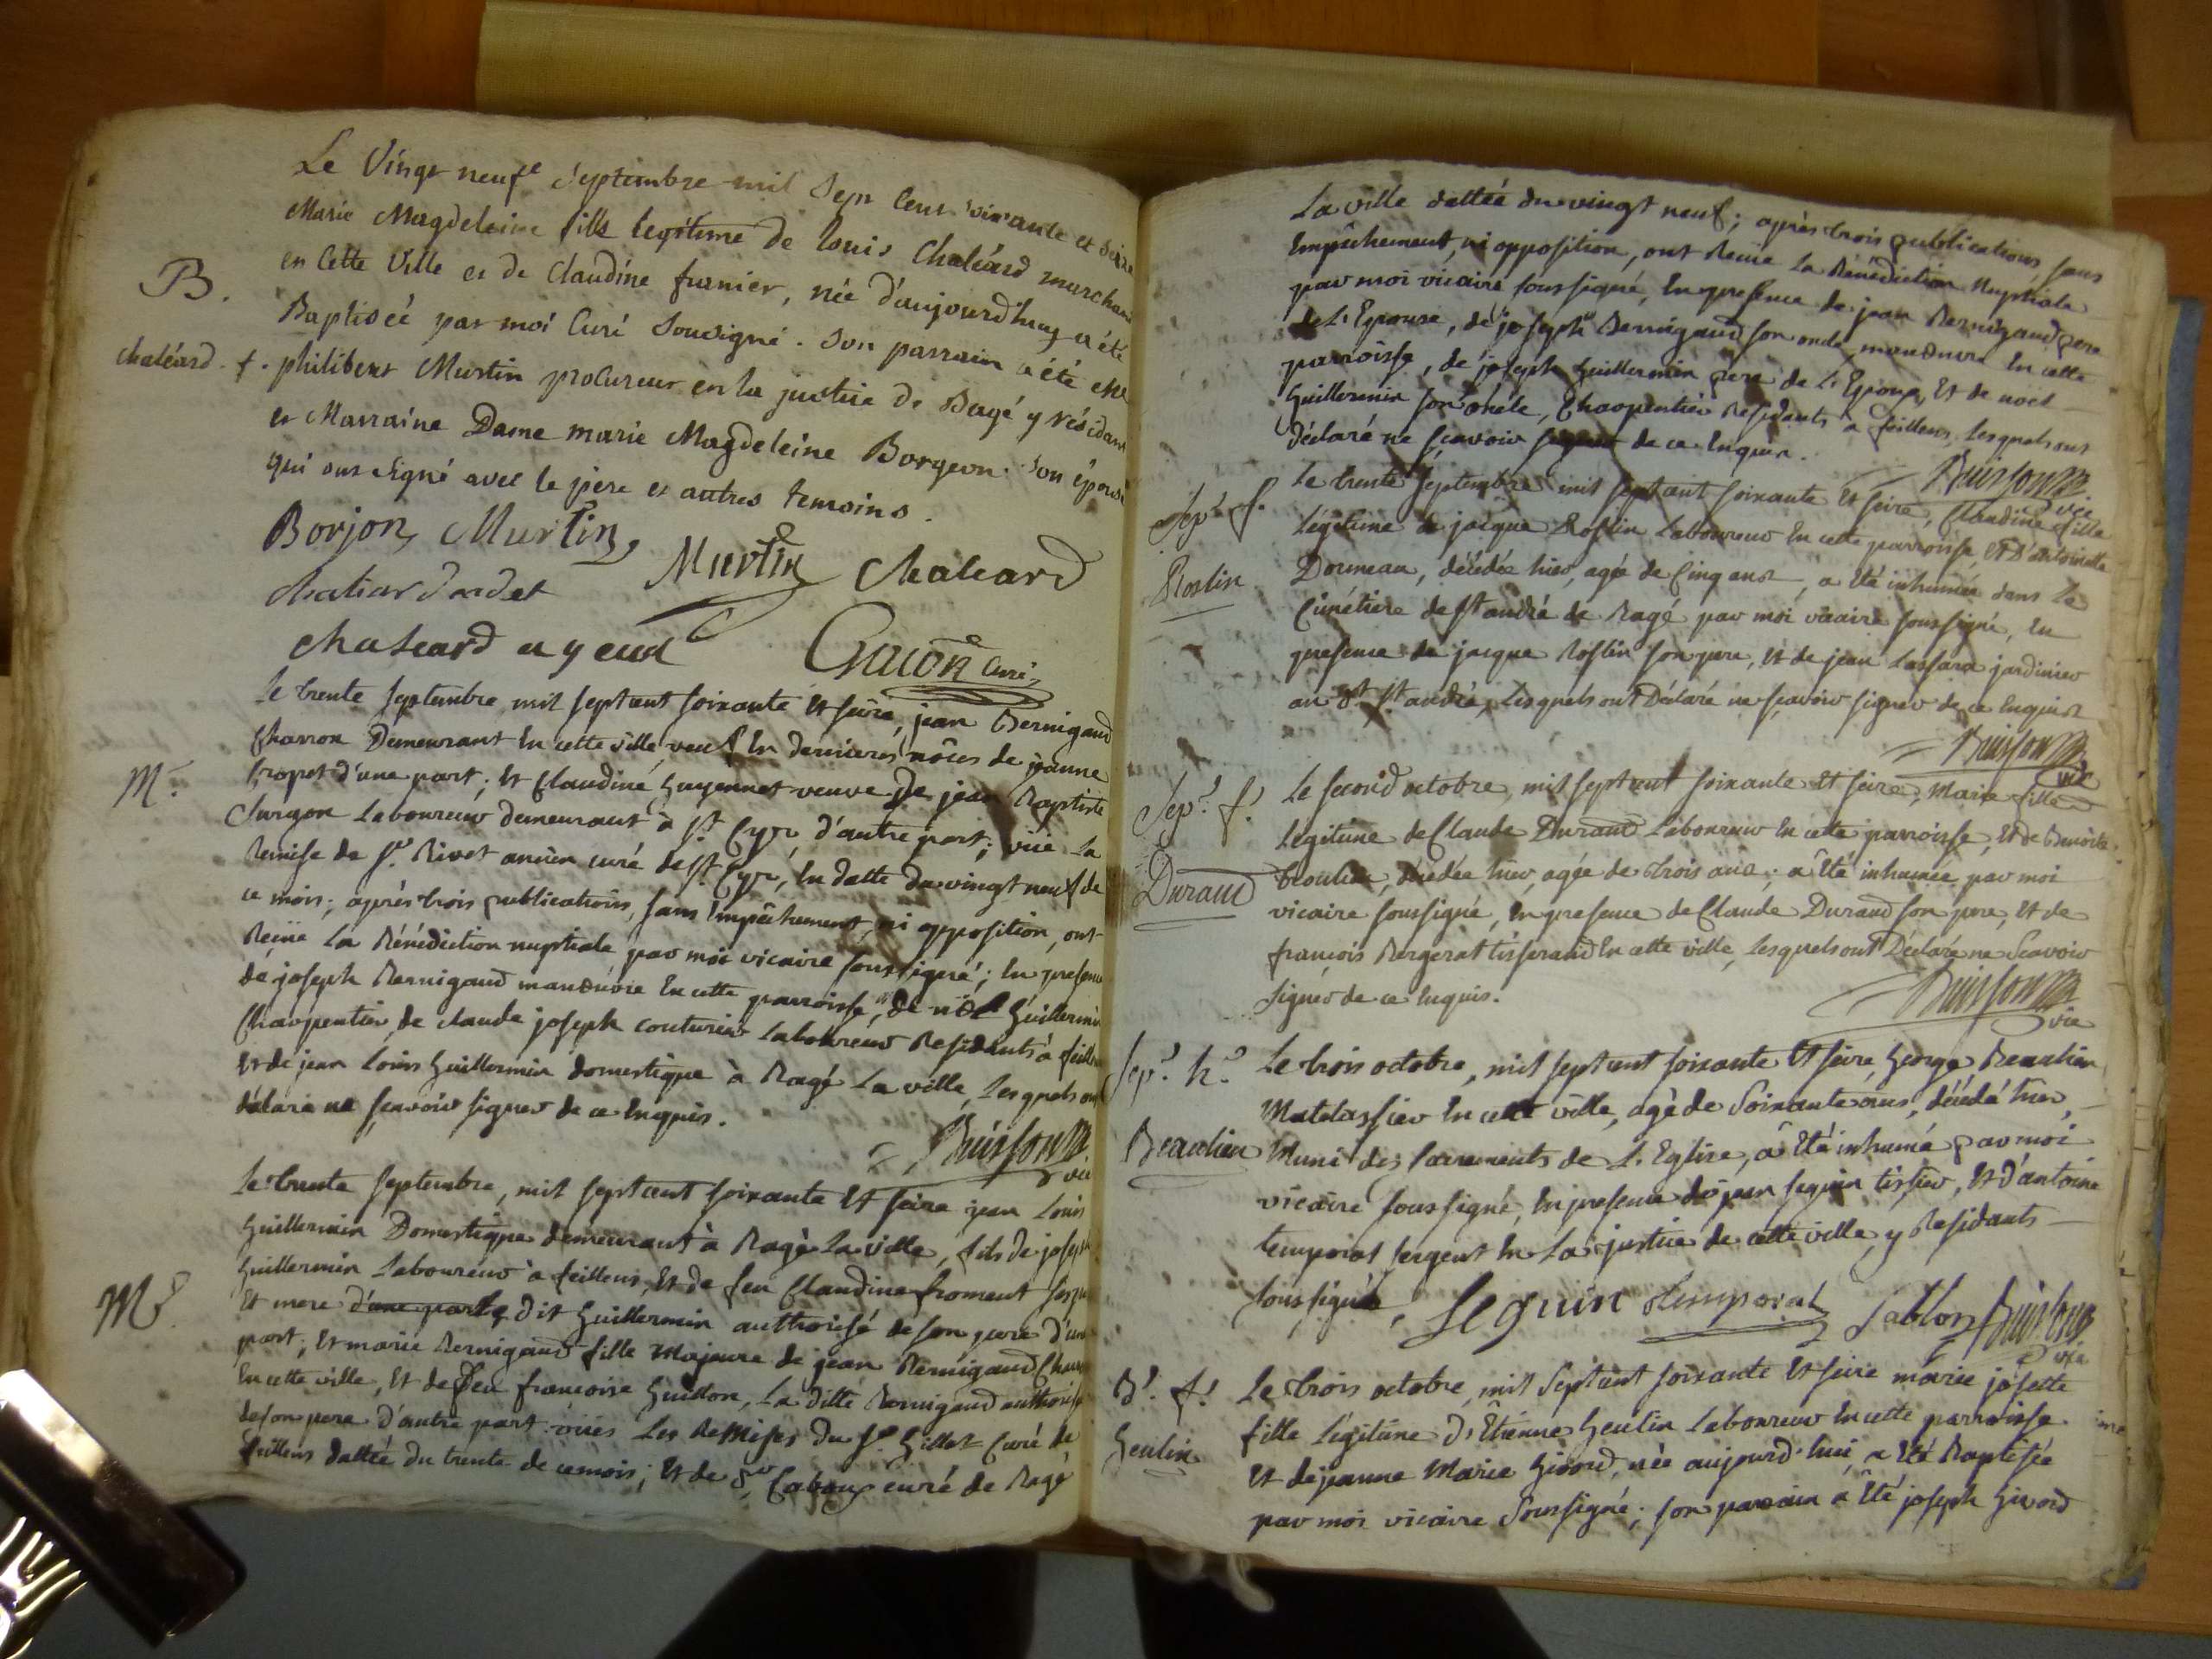 Le Vingt neufe Septembre mil Sept Cent soixante et seize
Marie Magdeleine fille legitime de Louis Chaléard marchand
en Cette Ville et de Claudine furnier, née d'aujourd'huy a été
B.
Baptisée par moi Curé Sousigné. Son parrain a été
Chaléard. f.
philibert Martin procureur en la justice de Bagé y résidant
et Marraine Dame marie Magdeleine Borgeon son épouse
qui ont signé avec le père et autres temoins.
Borjon Martin
Martin Chaleard
Chaleard ayeul
curé
Le trente septembre mil sept cent soixante et seize, jean Bernigaud
Charron Demeurant en cette ville, veuf en dernieres nôces de jeanne
M.
propet d'une part; et Claudine Guyennet veuve de jean Baptiste
Laboureur demeurant à St Cyr, d'autre part; vüe la
Remise de Sr. Rivet ancien curé de St Cyr, en datte du vingt neuf de
ce mois; après trois publications, sans Empêchement, ni opposition, ont
Reçüe la Bénédiction nuptiale par moi vicaire soussigné; en presence
de joseph Bernigaud manœuvre en cette parroisse, de noël Guillermin
Charpentier, de claude joseph couturier Laboureur Residants à feillens
et de jean Louis Guillermin domestique à Bagé La ville, Lesquels ont
déclaré ne sçavoir signer de ce enquis.
Buisson
vic
Le trente septembre, mil sept cent soixante et seize jean Louis
Guillermin Domestique demeurant à Bagé La ville, fils de joseph
Guillermin Laboureur à feillens, et de feu Claudine froment ses pere
M.
et mere d'une part, dit Guillermin authorisé de son pere d'une
part; et marie Bernigaud fille Majeure de jean Bernigaud Charron
en cette ville, et de feu françoise Guidon, la ditte Bernigaud authorisée
de son pere d'autre part vües Les Remises du Sr Gillet Curé de
feillens dattée du trente de ce mois; et de Sr Caboux curé de Bagé
La ville dattée du vingt neuf; après trois publications sans
Empêchement, ni opposition, ont Reçüe la Bénédiction Nuptiale
par moi vicaire soussigné, en presence de jean Bernigaud pere
de L'Epouse, de joseph Bernigaud son oncle manœuvre en cette
parroisse, de joseph Guillermin pere de L'Epoux, et de noël
Guillermin son oncle, Charpentier Residants à feillens lesquels ont
déclaré ne sçavoir signer de ce enquis.
Buisson
vic
Sepr. f.
Le trente septembre mil sept cent soixante et seize, Claudine fille
Légitime de jacque Roslin Laboureur en cette parroisse, et d'antoinette
Roslin
Douneau, décédée hier, agée de cinq ans, a été inhumée dans le
Cimétiere de St andré de Bagé par moi vicaire soussigné, en
presence de jacque Roslin son pere, et de jean Lassara jardinier
au dt St andré, Lesquels ont Déclaré ne sçavoir signer de ce enquis
Buisson
vic
Sepr. f.
Le second octobre, mil sept cent soixante et seize, Marie fille
Legitime de Claude Durand Laboureur en cette parroisse, et de Benoite
Durand
décédée hier, agée de trois ans; a été inhumée par moi
vicaire soussigné, en presence de Claude Durand son pere, et de
françois Bergerat tisserand en cette ville, Lesquels ont Déclaré ne Scavoir
signer de ce enquis.
Buisson
vic
Sepr. h.
Le trois octobre, mil sept cent soixante et seize, George Beaulieu
Matelassier en cette ville, agé de soixante ans, décédé hier,
Beaulieu
Muni des sacrements de L'Eglise, a été inhumé par moi
vicaire soussigné, en presence de jean seguin tissier, et d'antoine
temporal sergent en la justice de cette ville, y Residants
soussignés, Seguin temporal Sablon Buisson
vic
B. f.
Le trois octobre mil Sept cent soixante et seize mariee josette
fille Légitime d'Étienne Geulin Laboureur en cette parroisse
Geulin
et de jeanne Marie Givord, née aujourd'hui, a été Baptisée
par moi vicaire soussigné; son parrain a été joseph Givord